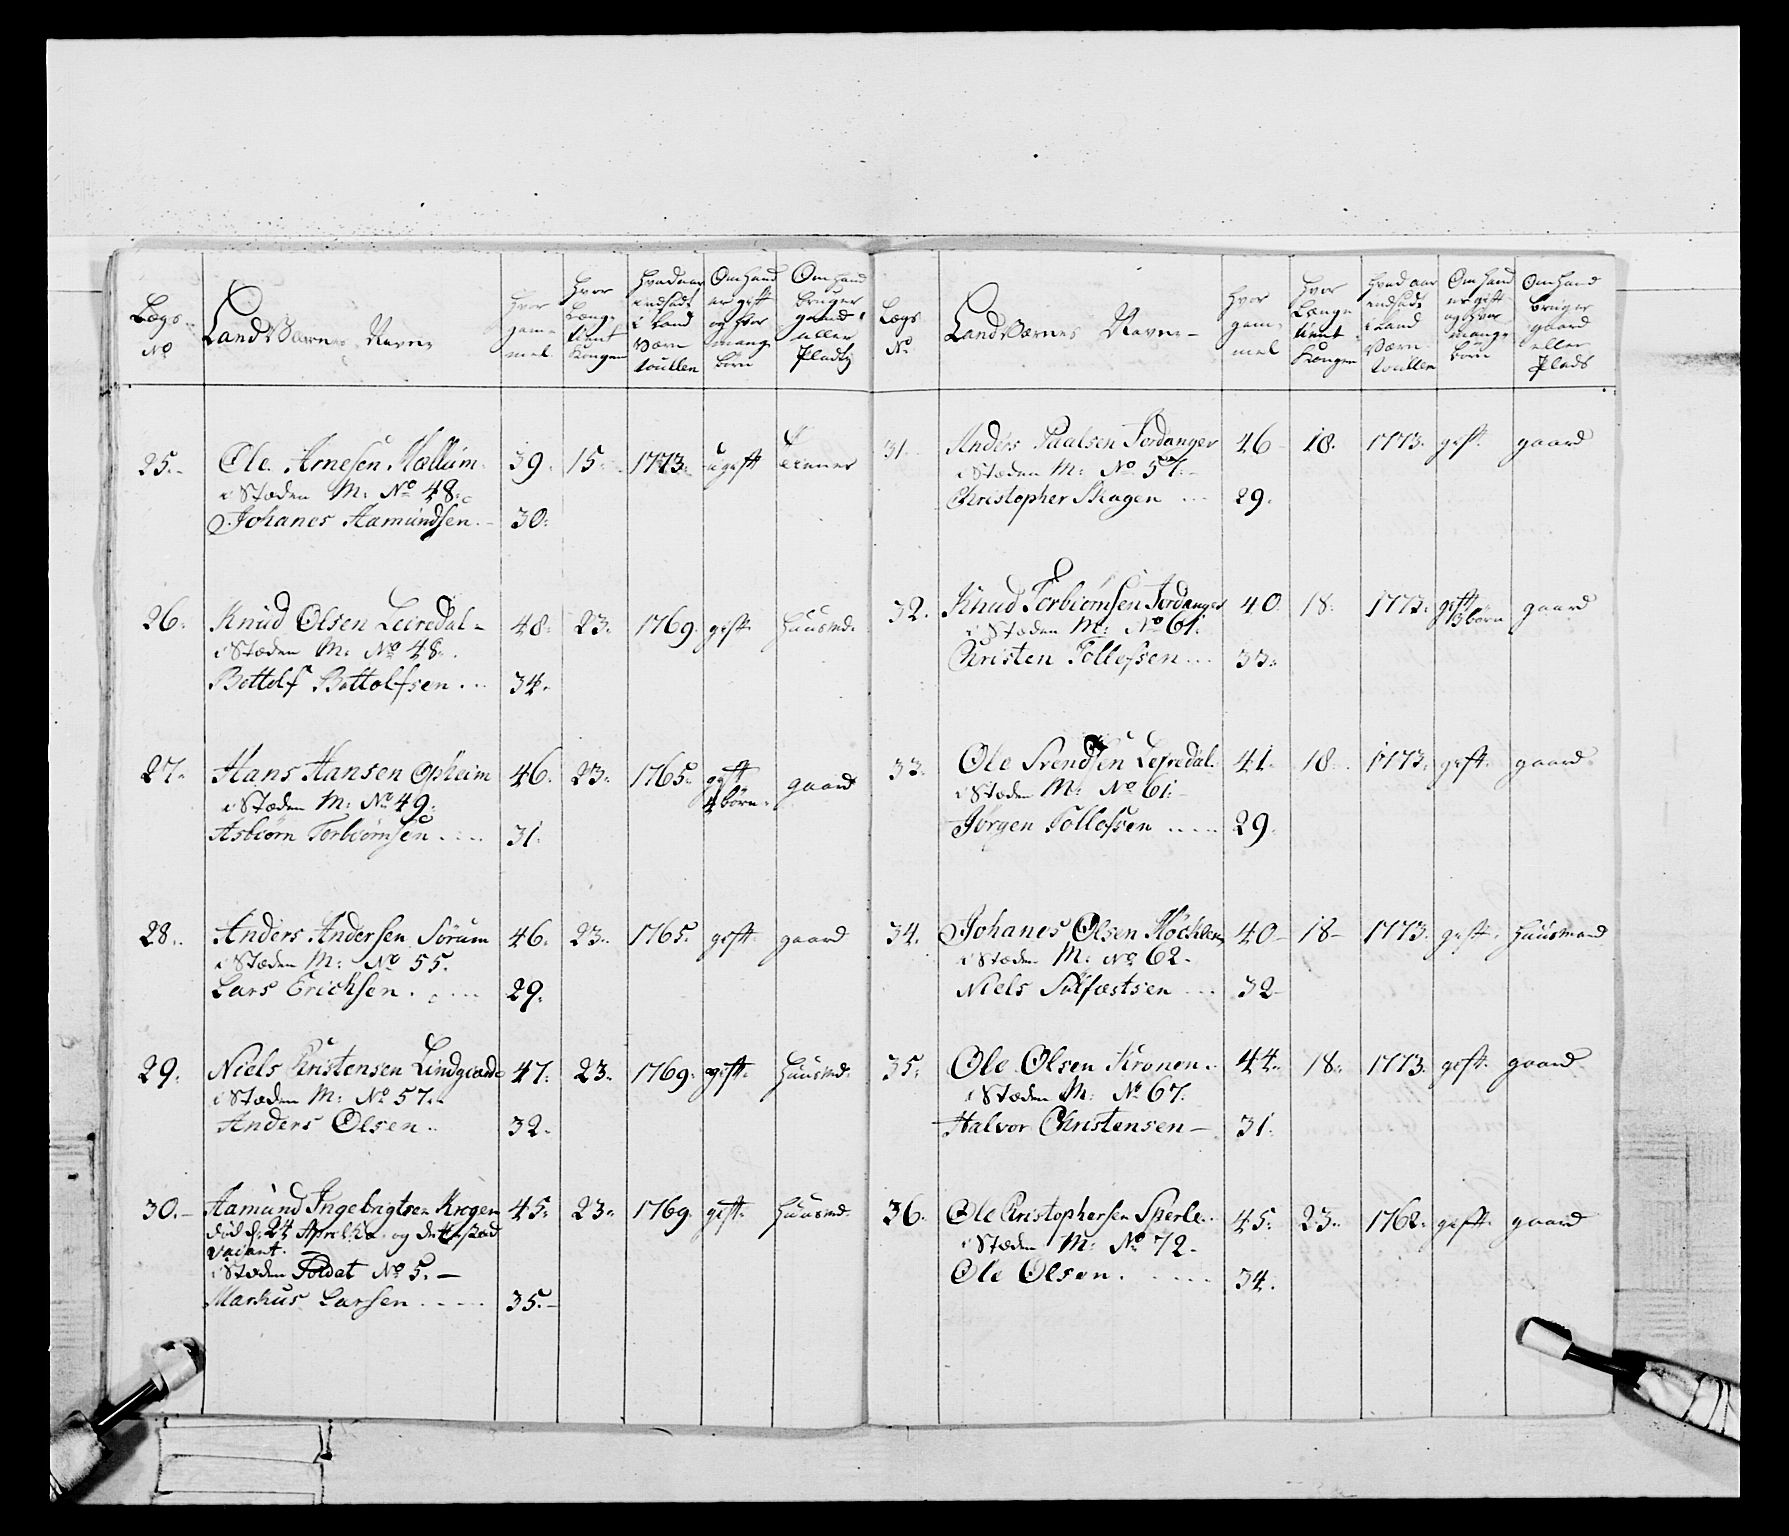 Lægs No
Land Værnes Navne
Hvor gammel
Hvor Længe tient Kongen
Hvad aar indsadt i Land Værn roullen
Om hand er gift og hvor mange børn
Om hand bruger gaard eller Plads
25. Ole Arnesen Mællum 39. 15. 1773. ugift tienner
i Stæden M: No 48.
Johanes Aamundsen. 30.
26. Knud Olsen Leiredal 48. 23. 1769. gift. Huusmd.
i Stæden M: No 48.
Bottolf Bottolfsen... 34.
27. Hans Hansen Opheim 46. 23. 1765. gift 4 børn. gaard
i Stæden M: No 49.
Asbiørn Torbiørnsen.... 31.
28. Anders Andersen Sørum 46. 23. 1765. gift. gaard
i Stæden M: No 55.
Lars Erichsen..... 29.
29. Niels Christensen Lindgaard 47. 23. 1769. gift. Huusmd.
i Stæden M: No 57.
Anders Olsen.. 32.
30. Aamund Ingebrigtsen Krogen 45. 23. 1769. gift. Huusmd.
død d: 24 April og
vacant.
i Stæden Soldat No 5.
Markus Larsen..... 35.
Lægs No
Land Værnes Navne
Hvor gammel
Hvor Længe tient Kongen
Hvad aar indsadt i Land Værn roullen
Om hand er gift og hvor mange børn
Om hand bruger gaard eller Plads
31. Anders Paalsen Jordanger 46 18. 1773. gift. gaard
i Stæden M: No 57.
Christopher Skagen ... 29.
32. Knud Torbiørnsen Jordanger 40. 18. 1773. gift 3 børn gaard
i Stæden M: No 61.
Christen Tollefsen... 33.
33. Ole Svendsen Leiredal. 41. 18. 1773. gift. gaard.
i Stæden M: No 61.
Jørgen Tollofsen ..... 29.
34. Johanes Olsen 40 18 1773. gift. Huusmand
i Stæden M: No 62.
Niels Sulfæstsen ... 32
35. Ole Olsen Kronen.. 44. 18. 1773. gift. gaard
i Stæden M: No 67.
Halvor Christensen 31.
36. Ole Christophersen Sperle. 45. 23. 1762. gift. gaard
i Stæden M: No 72.
Ole Olsen..... 34.